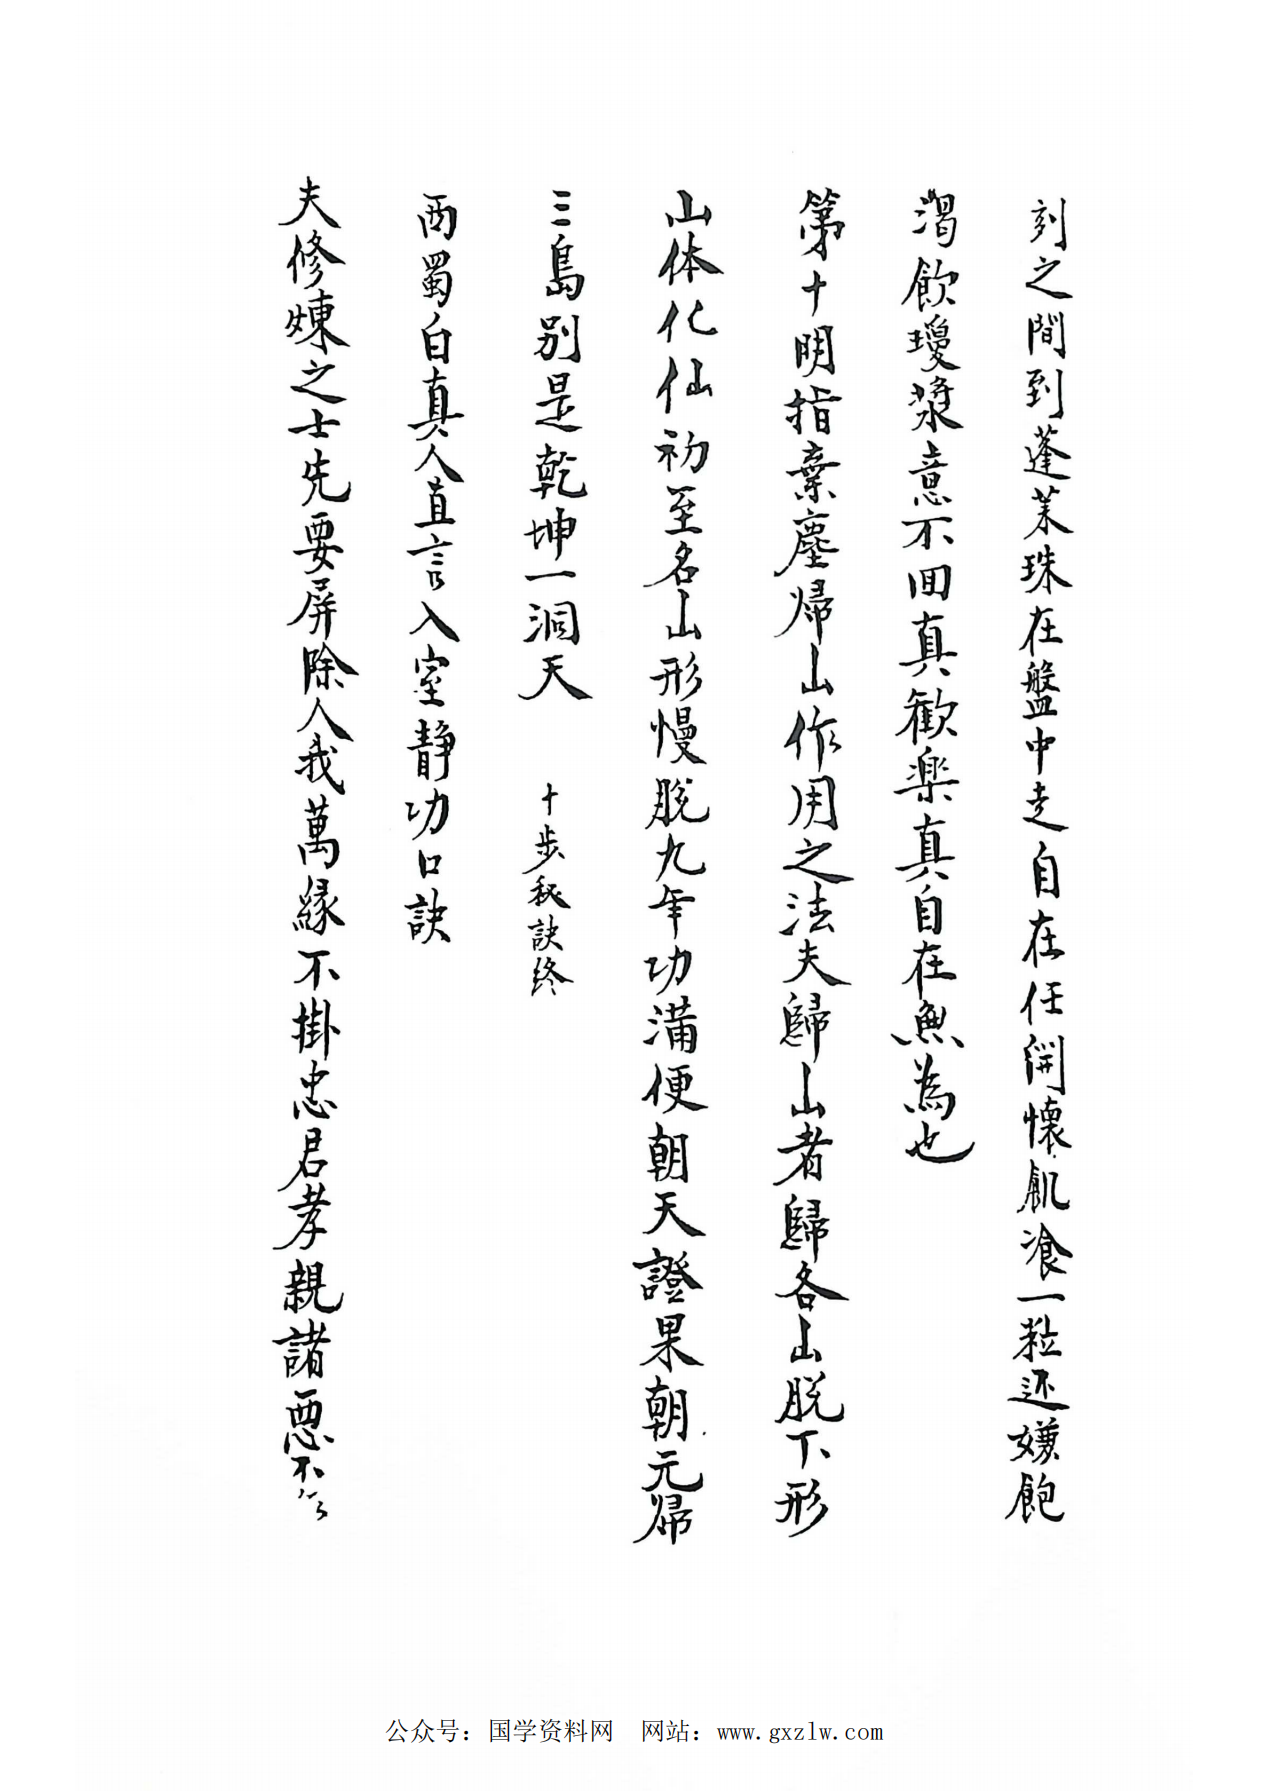 刻之間到蓬萊珠在盤中走自在任開懷飢飡一粒还嫌飽
渴飲瓊漿意不回真歡楽真自在無為也
第十明指棄塵帰山作用之法夫歸山者歸各山脱下形
山体化仙初至名山形慢脱九年功滿便朝天證果朝元帰
三島别是乾坤一洞天 十步秘訣终
西蜀白真人直言入室静功口訣
夫修煉之士先要屏除人我萬緣不掛忠君孝親諸惡不
公众号：国学资料网 网站：www.gxzlw.com